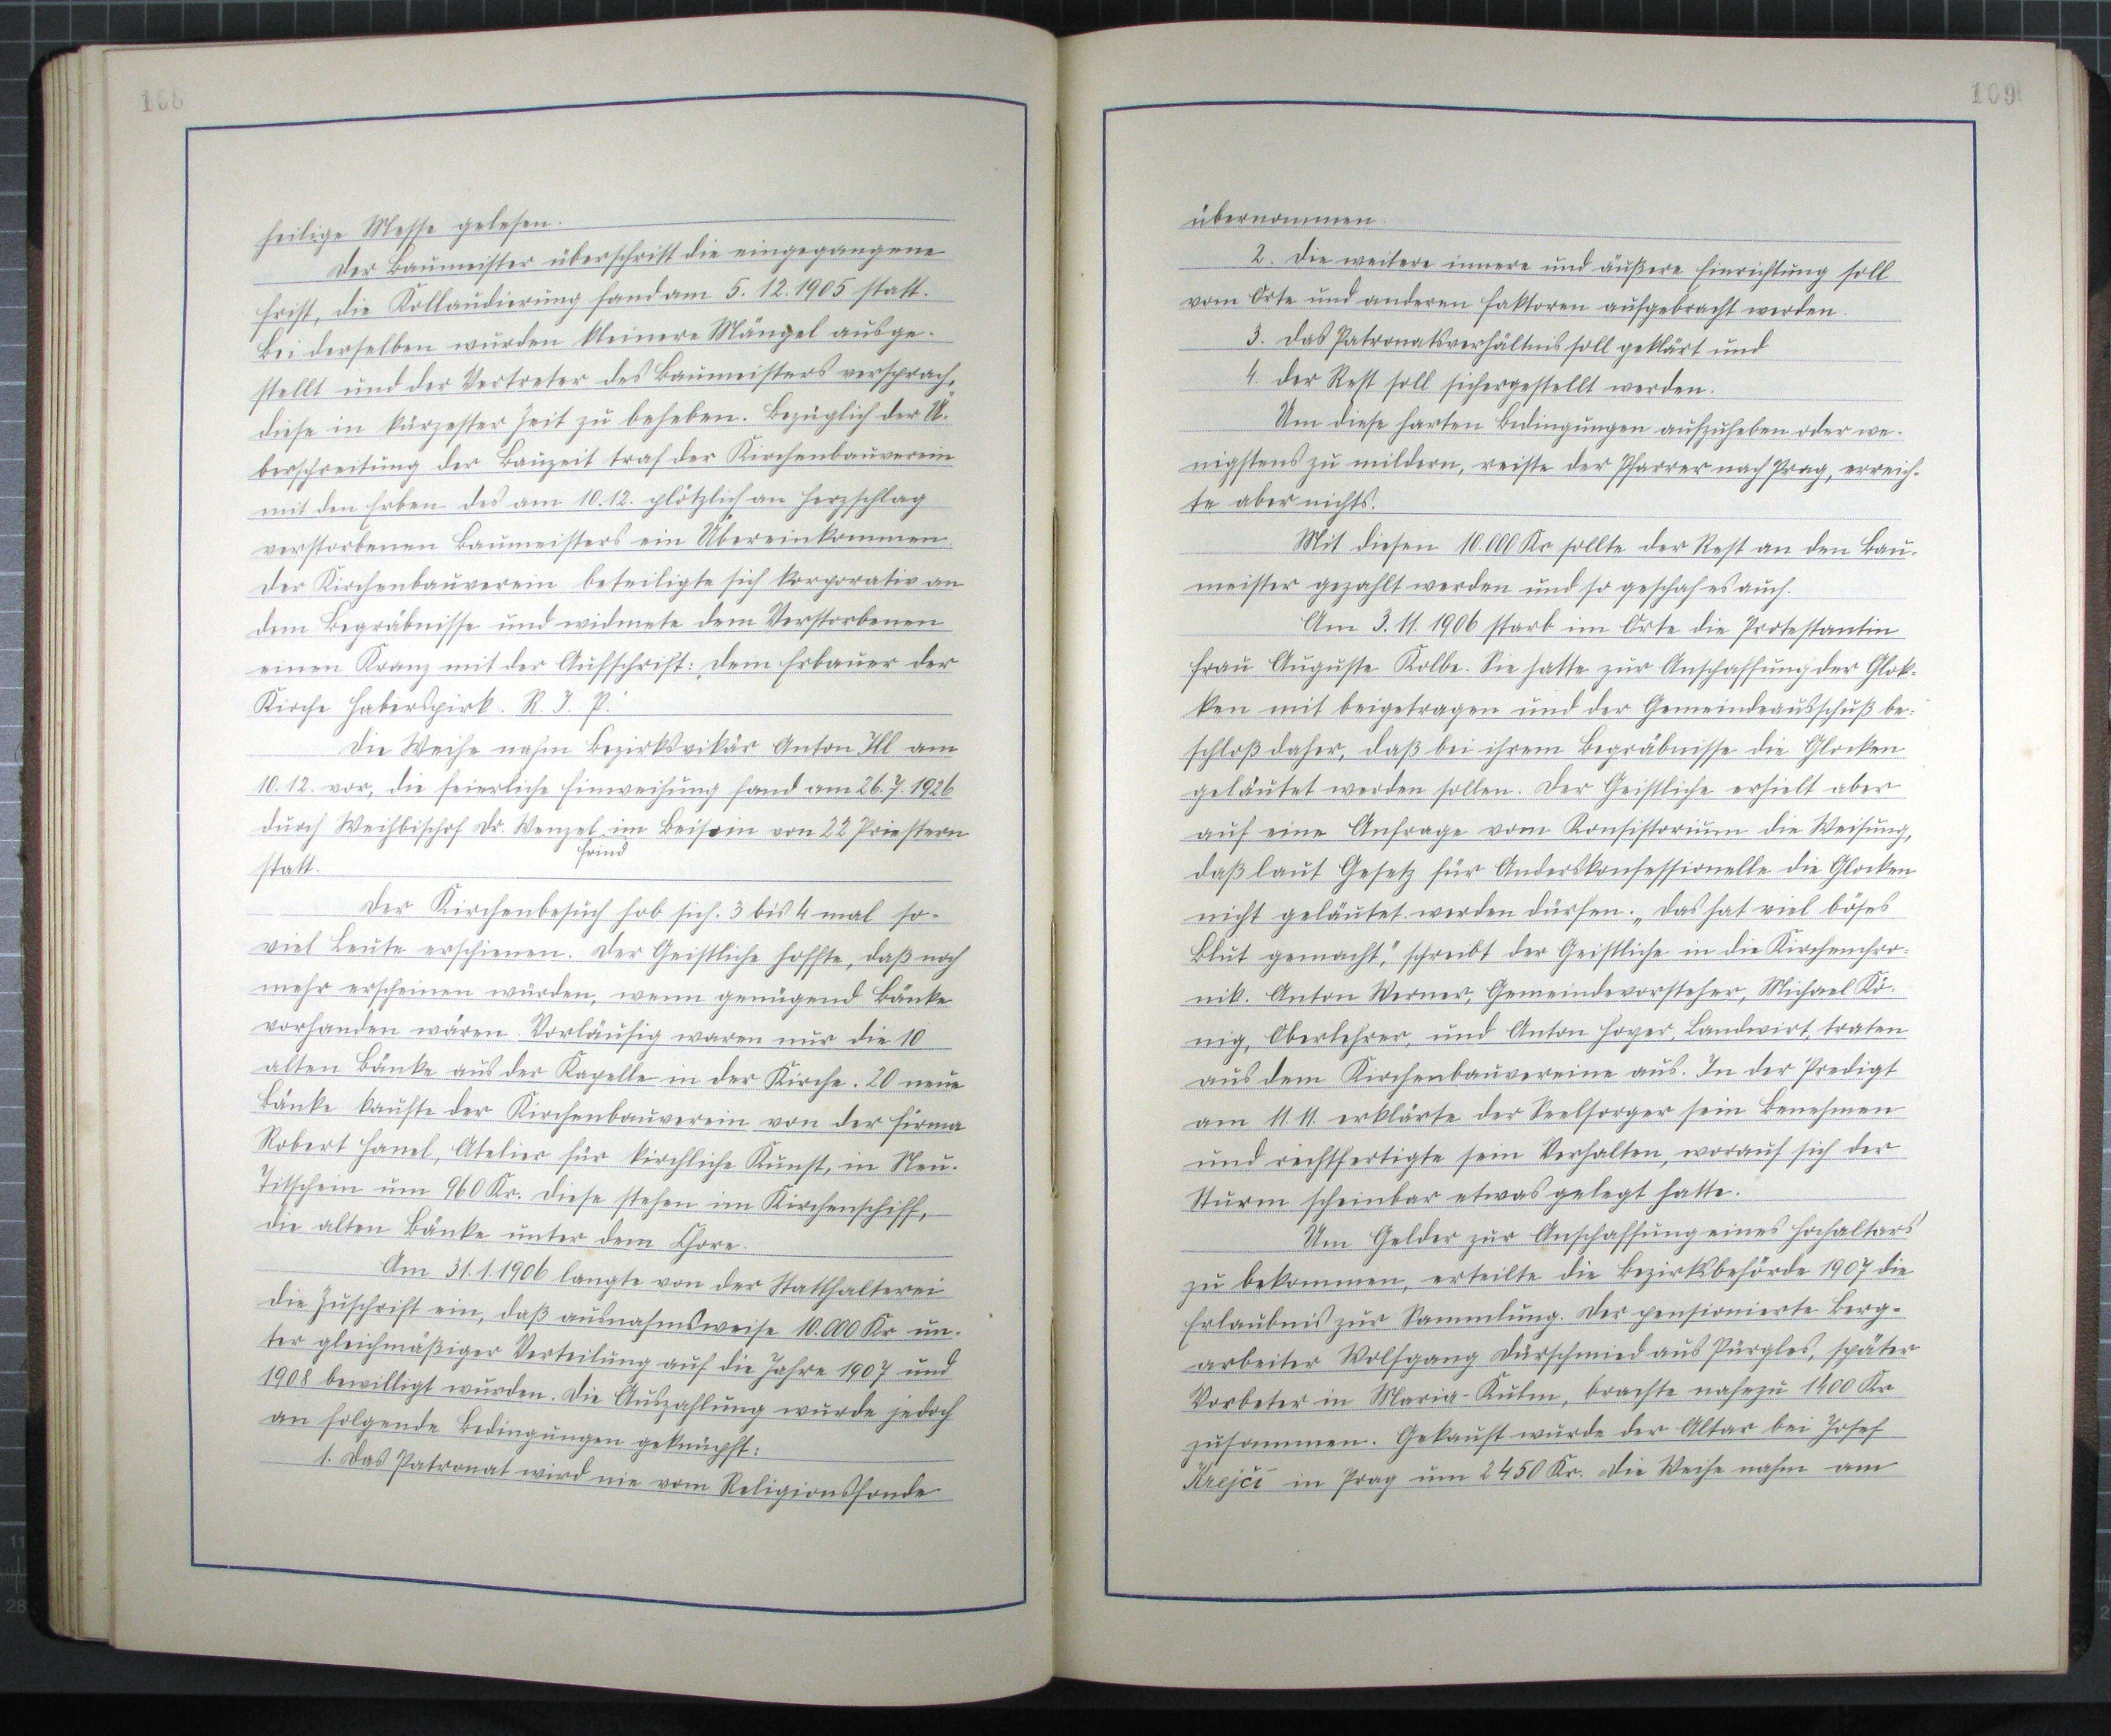 108
heilige Messe gelesen.
Der Baumeister überschritt die eingegangene
Frist, die Kollaudierung fand am 5.12.1905 statt.
Bei derselben wurden kleinere Mängel ausge-
stellt und der Vertreter des Baumeisters versprach,
diese in kürzester Zeit zu beheben. Bezüglich der Ü-
berschreitung der Bauzeit traf der Kirchenbauverein
mit den Erben des am 10.12. plötzlich an Herzschlag
verstorbenen Baumeisters ein Übereinkommen.
Der Kirchenbauverein beteiligte sich korporativ an
dem Begräbnisse und widmete dem Verstorbenen
einen Kranz mit der Aufschrift: „Dem Erbauer der
Kirche Haberspirk. R. I. P."
Die Weihe nahm Bezirksvikär Anton Ill am
10.12. vor, die feierliche Einweihung fand am 26.7.1926
durch Weihbischof Dr. Wenzel Frind im Beisein von 22 Priestern
statt.
Der Kirchenbesuch hob sich. 3 bis 4 mal so-
viel Leute erschienen. Der Geistliche hoffte, daß noch
mehr erscheinen würden, wenn genügend Bänke
vorhanden wären. Vorläufig waren nur die 10
alten Bänke aus der Kapelle in der Kirche. 20 neue
Bänke kaufte der Kirchenbauverein von der Firma
Robert Hanel, Atelier für kirchliche Kunst, in Neu-
Titschein um 960 Kr. Diese stehen im Kirchenschiff,
die alten Bänke unter dem Chore.
Am 31.1.1906 langte von der Statthalterei
die Zuschrift ein, daß ausnahmsweise 10.000 Kr un-
ter gleichmäßiger Verteilung auf die Jahre 1907 und
1908 bewilligt wurden. Die Auszahlung wurde jedoch
an folgende Bedingungen geknüpft:
1. Das Patronat wird nie vom Religionsfonde
109
übernommen.
2. Die weitere innere und äußere Einrichtung soll
vom Orte und anderen Faktoren aufgebracht werden.
3. Das Patronatsverhältnis soll geklärt und
4. der Rest soll sichergestellt werden.
Um diese harten Bedingungen aufzuheben oder we-
nigstens zu mildern, reiste der Pfarrer nach Prag, erreich-
te aber nichts.
Mit diesen 10.000 Kr sollte der Rest an den Bau-
meister gezahlt werden und so geschah es auch.
Am 3.11.1906 starb im Orte die Protestantin
Frau Auguste Kolbe. Sie hatte zur Anschaffung der Glok-
ken mit beigetragen und der Gemeindeausschuß be-
schloß daher, daß bei ihrem Begräbnisse die Glocken
geläutet werden sollen. Der Geistliche erhielt aber
auf eine Anfrage vom Konsistorium die Weisung,
daß laut Gesetz für Anderskonfessionelle die Glocken
nicht geläutet werden dürfen. „Das hat viel böses
Blut gemacht," schreibt der Geistliche in die Kirchenchro-
nik. Anton Werner, Gemeindevorsteher, Michael Kö-
nig, Oberlehrer, und Anton Hoyer, Landwirt, traten
aus dem Kirchenbauvereine aus. In der Predigt
am 11.11. erklärte der Seelsorger sein Benehmen
und rechtfertigte sein Verhalten, worauf sich der
Sturm scheinbar etwas gelegt hatte.
Um Gelder zur Anschaffung eines Hochaltars
zu bekommen, erteilte die Bezirksbehörde 1907 die
Erlaubnis zur Sammlung. Der pensionierte Berg-
arbeiter Wolfgang Dürschmied aus Pürgles, später
Vorbeter in Maria-Kulm, brachte nahezu 1400 Kr
zusammen. Gekauft wurde der Altar bei Josef
Krejčí in Prag um 2450 Kr. Die Weihe nahm am